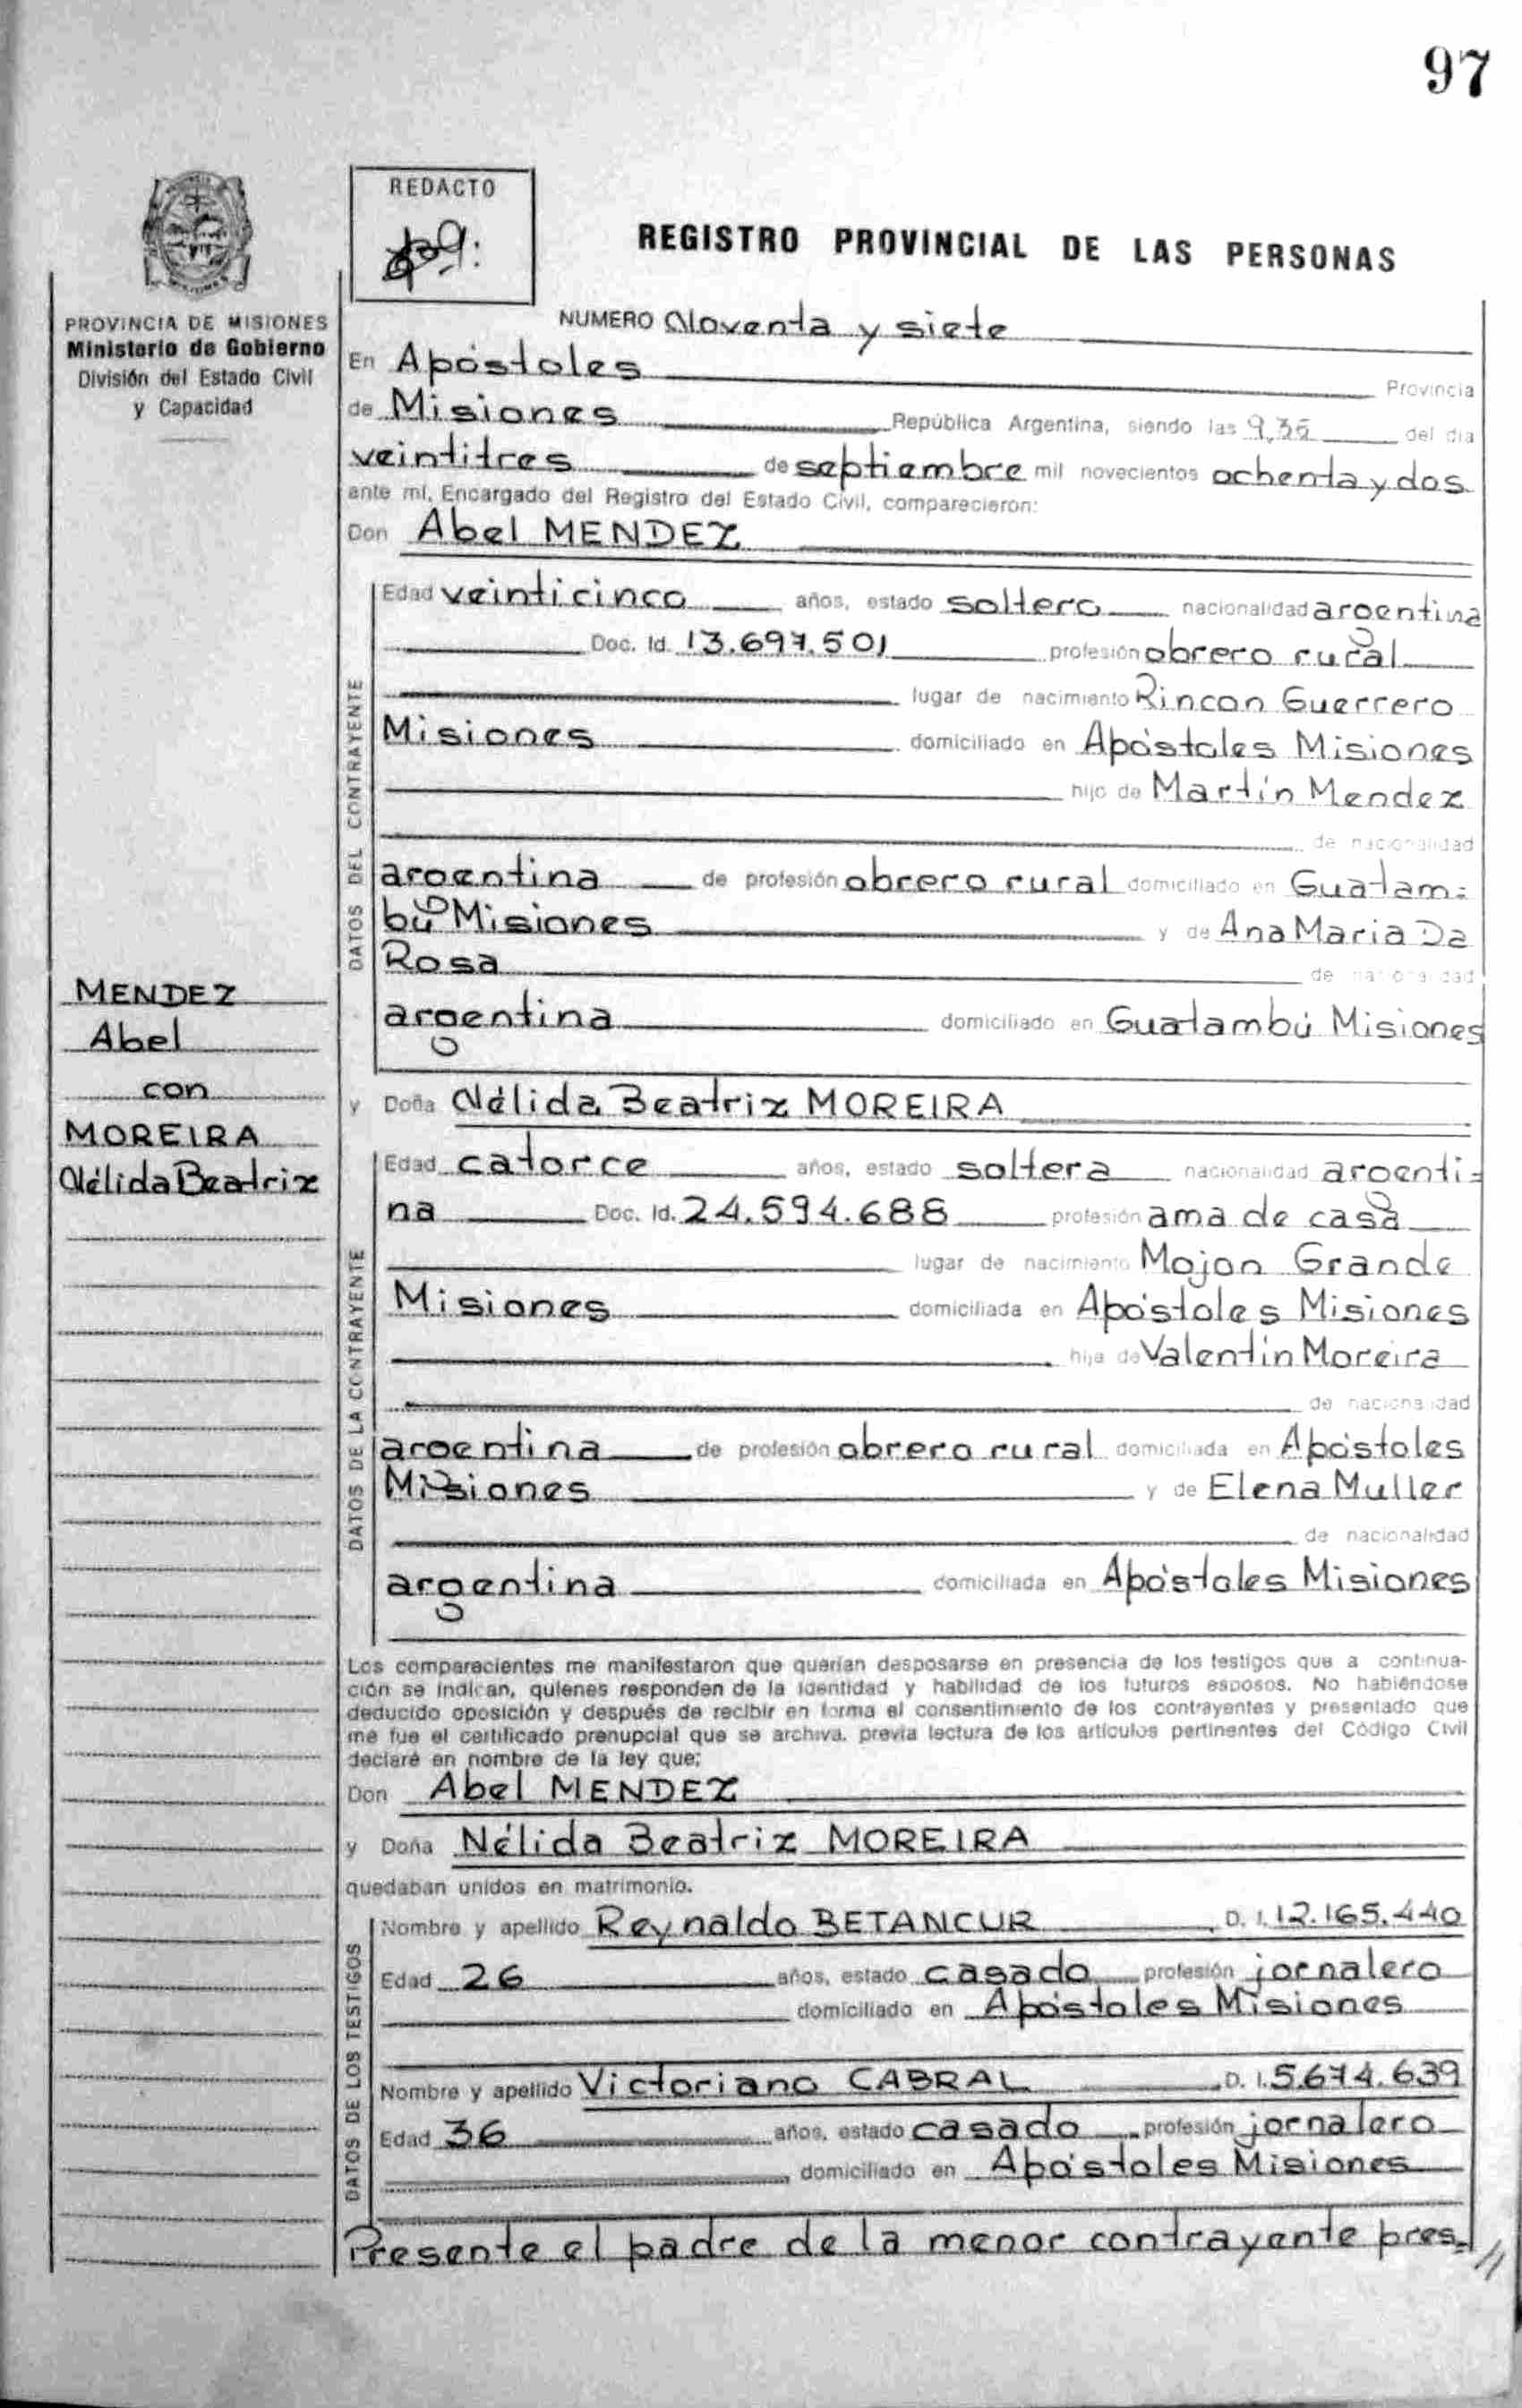 97
REDACTO
REGISTRO PROVINCIAL DE LAS PERSONAS
PROVINCIA DE MISIONES
Ministerio de Gobierno
División del Estado Civil
y Capacidad
MENDEZ
Abel
con
MOREIRA
Nélida Beatriz
NUMERO Noventa y siete
En Apóstoles Provincia
de Misiones República Argentina, siendo las 9,35 del día
veintitres de septiembre mil novecientos ochenta y dos
ante mí, Encargado del Registro del Estado Civil, comparecieron:
Don Abel MENDEZ
DATOS DEL CONTRAYENTE
Edad veinticinco años, estado soltero nacionalidad argentina
Doc. Id. 13.697.501 profesión obrero rural
lugar de nacimiento Rincon Guerrero
Misiones domiciliado en Apóstoles Misiones
hijo de Martín Mendez
de nacionalidad
argentina de profesión obrero rural domiciliado en Guatam=
bú Misiones y de Ana Maria Da
Rosa de nacionalidad
argentina domiciliado en Guatambú Misiones
y Doña Nélida Beatriz MOREIRA
DATOS DE LA CONTRAYENTE
Edad catorce años, estado soltera nacionalidad argenti=
na Doc. Id. 24.594.688 profesión ama de casa
lugar de nacimiento Mojon Grande
Misiones domiciliada en Apóstoles Misiones
hija de Valentin Moreira
de nacionalidad
argentina de profesión obrero rural domiciliada en Apóstoles
Misiones y de Elena Muller
de nacionalidad
argentina domiciliada en Apóstoles Misiones
Los comparecientes me manifestaron que querían desposarse en presencia de los testigos que a continua-
ción se indican, quienes responden de la identidad y habilidad de los futuros esposos. No habiéndose
deducido oposición y después de recibir en forma el consentimiento de los contrayentes y presentado que
me fue el certificado prenupcial que se archiva, previa lectura de los artículos pertinentes del Código Civil
declaré en nombre de la ley que:
Don Abel MENDEZ
y Doña Nélida Beatriz MOREIRA
quedaban unidos en matrimonio.
DATOS DE LOS TESTIGOS
Nombre y apellido Reynaldo BETANCUR D. I. 12.165.440
Edad 26 años, estado casado profesión jornalero
domiciliado en Apóstoles Misiones
Nombre y apellido Victoriano CABRAL D. I. 5.674.639
Edad 36 años, estado casado profesión jornalero
domiciliado en Apóstoles Misiones
Presente el padre de la menor contrayente pres= //